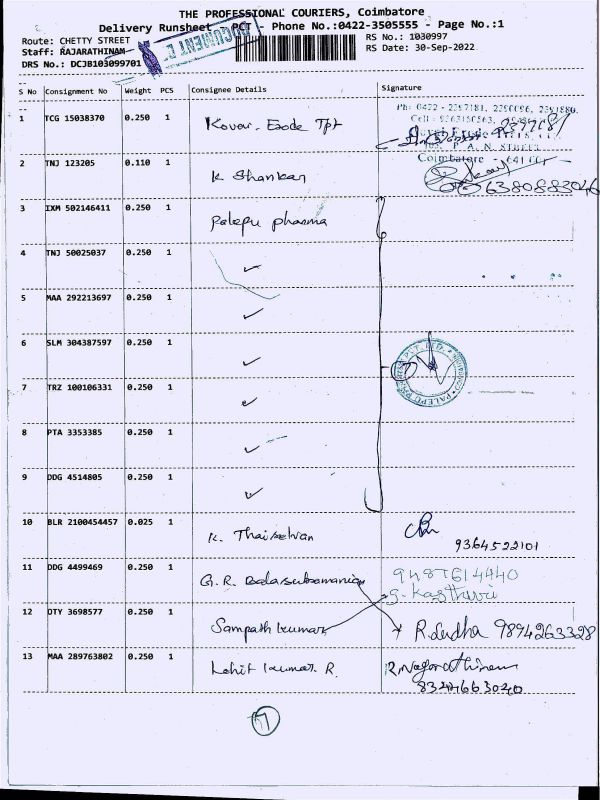 THE PROFESSIONAL COURIERS, Coimbatore
Delivery Runsheet - PCT - Phone No.:0422-3505555 - Page No.:1
Route: CHETTY STREET
Staff: RAJARATHINAM
DRS No.: DCJB103099701
RS No.: 1030997
RS Date: 30-Sep-2022
DOCUMENT
S No Consignment No Weight PCS Consignee Details Signature
Ph: 0422 - 2397181, 2390096, 2391880.
1 TCG 15038370 0.250 1 Kovai. Erode Tpt
Coimbatore - 641 001
2 TNJ 123205 0.110 1 K Shankar
6380883046
3 IXM 502146411 0.250 1 Palepu pharma
4 TNJ 50025037 0.250 1 ✓
5 MAA 292213697 0.250 1 ✓
6 SLM 304387597 0.250 1 ✓
PALEPU PVT. LTD.
7 TRZ 100106331 0.250 1 ✓
8 PTA 3353385 0.250 1 ✓
9 DDG 4514805 0.250 1 ✓
10 BLR 2100454457 0.025 1 K. Thaiselvan
9364522101
11 DDG 4499469 0.250 1 G.R. Balasubramanian 9487614440
G. Kasthuri
12 OTY 3698577 0.250 1 Sampath kumar R. Sudha 9894263328
13 MAA 289763802 0.250 1 Lohit kumar R. R. Nagarathinam
8344663040